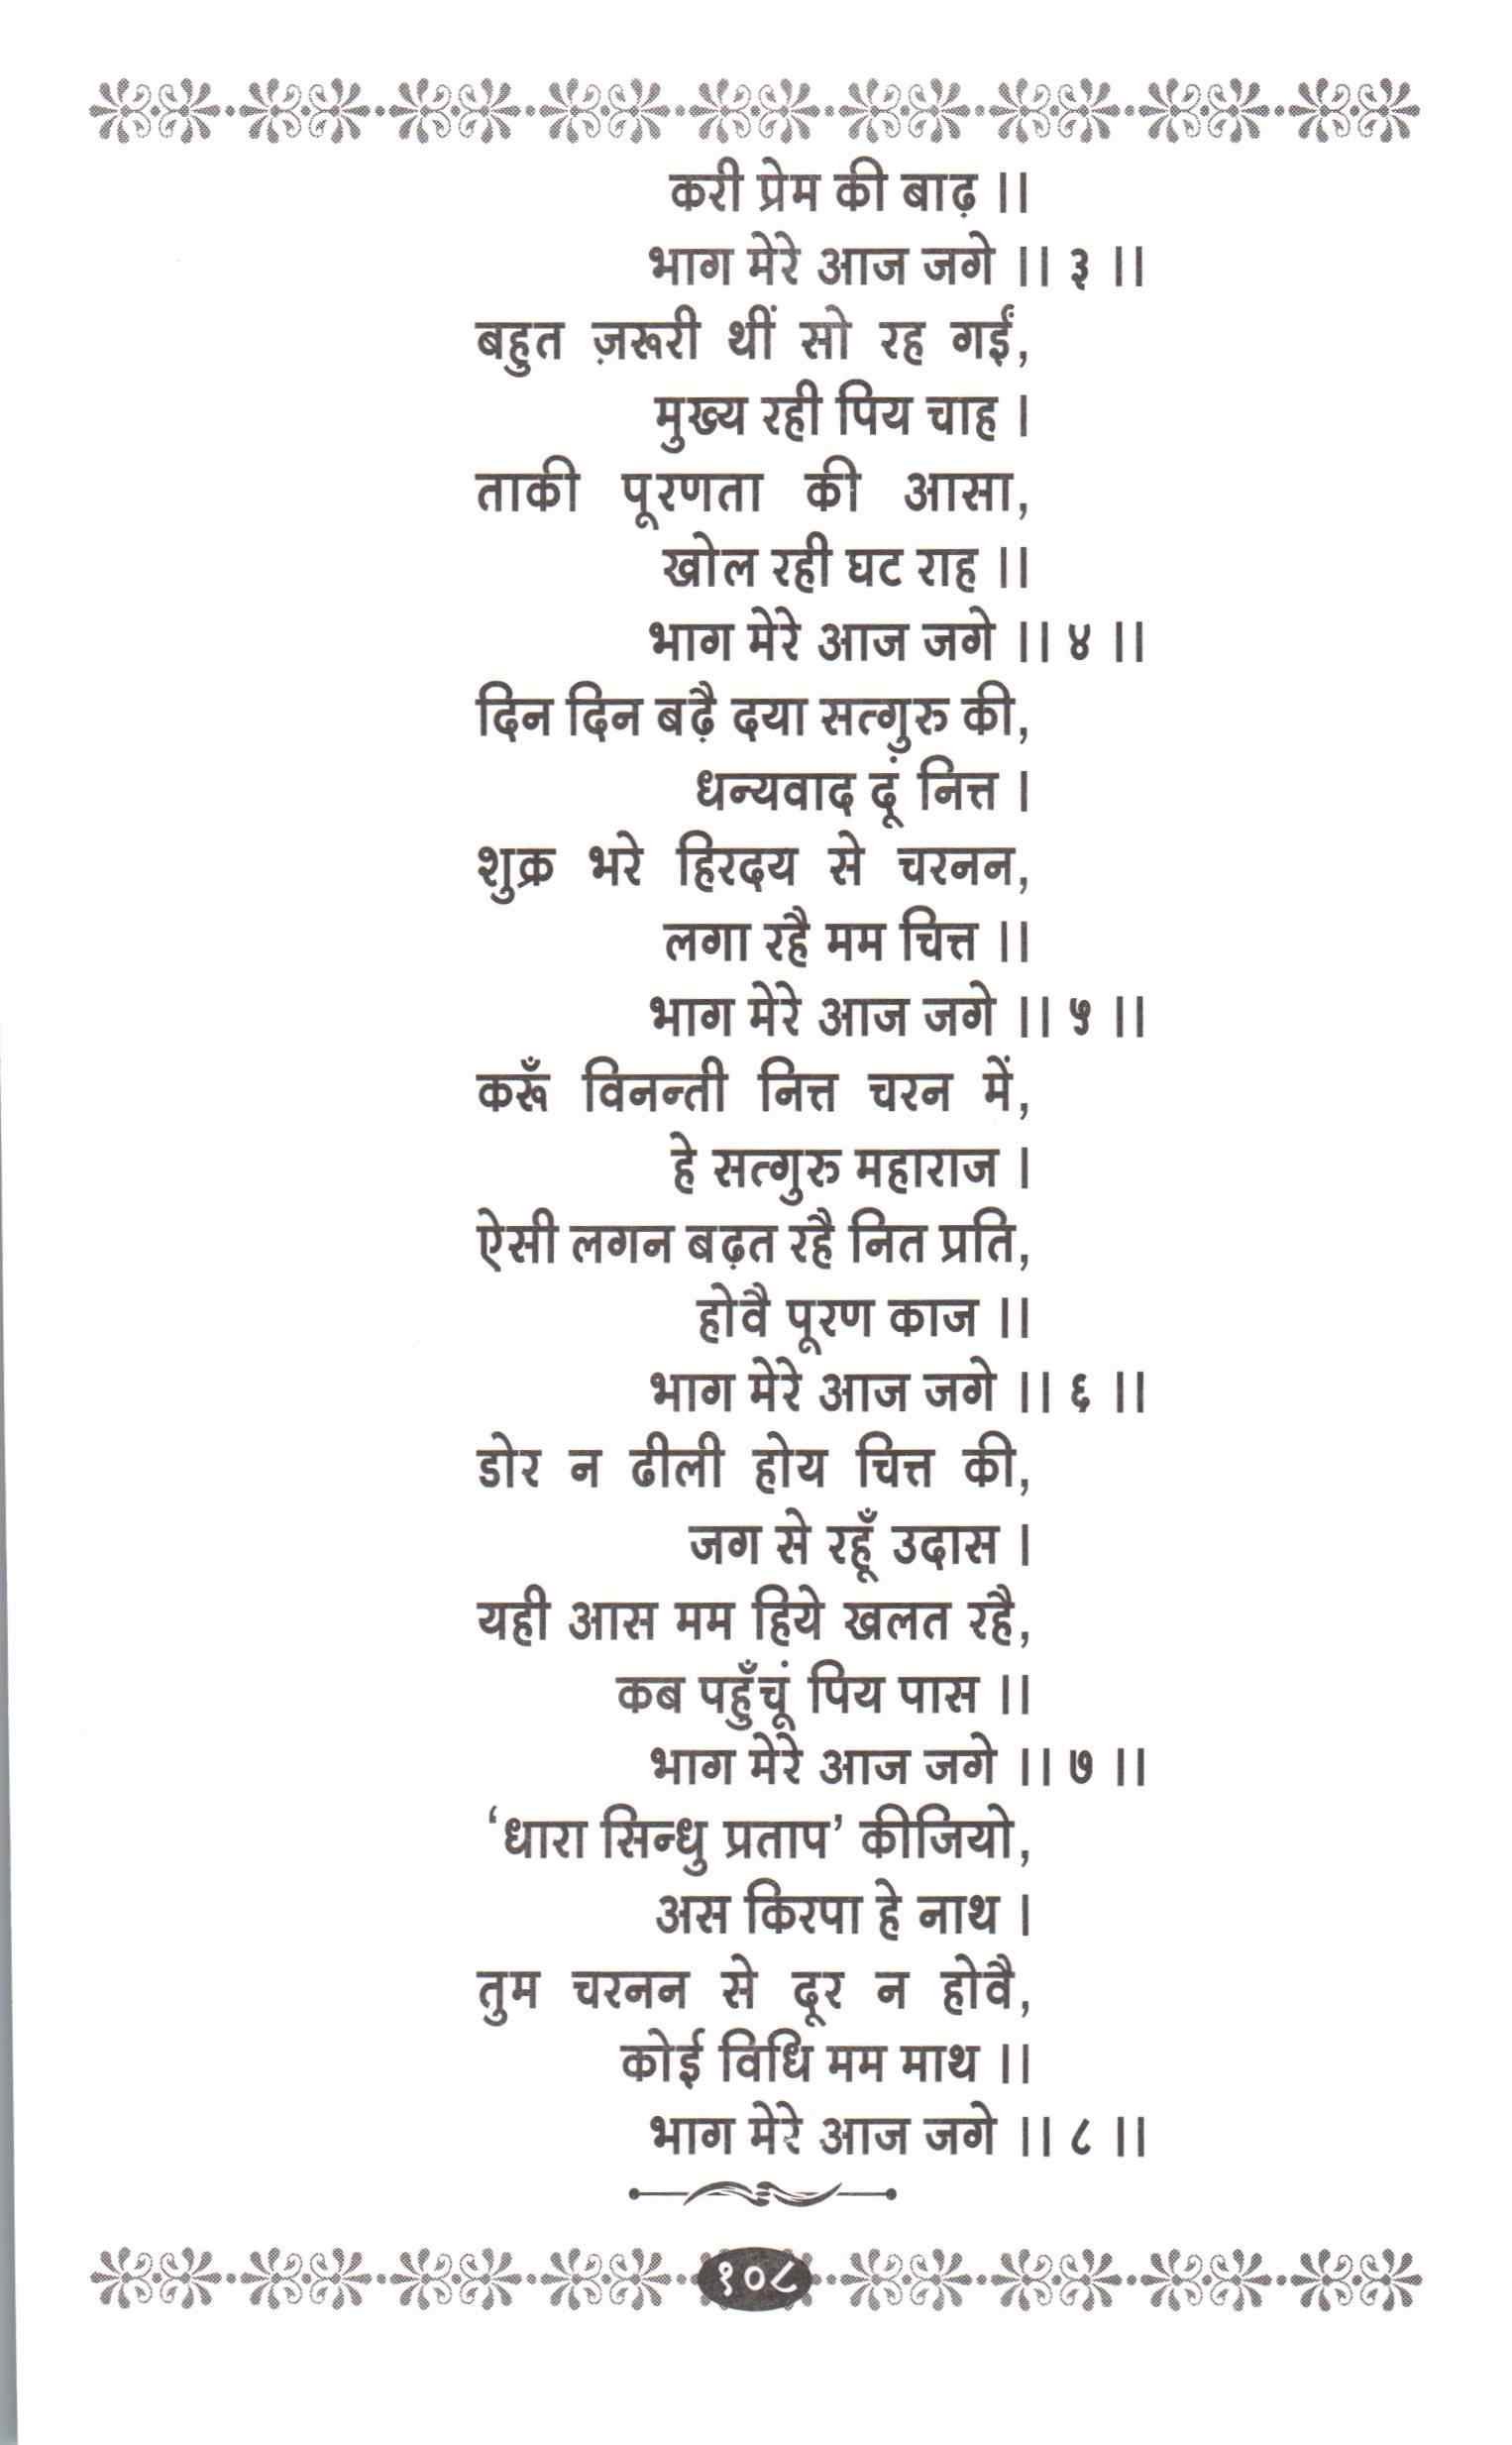 करी प्रेम की बाढ़ ।।
भाग मेरे आज जगे ।। ३ ।।
बहुत ज़रूरी थीं सो रह गईं,
मुख्य रही पिय चाह ।
ताकी पूरणता की आसा,
खोल रही घट राह ।।
भाग मेरे आज जगे ।। ४ ।।
दिन दिन बढ़ै दया सतगुरु की,
धन्यवाद दूं नित्त ।
शुक्र भरे हिरदय से चरनन,
लगा रहै मम चित्त ।।
भाग मेरे आज जगे ।। ५ ।।
करूँ विनन्ती नित्त चरन में,
हे सत्गुरु महाराज ।
ऐसी लगन बढ़त रहै नित प्रति,
होवै पूरण काज ।।
भाग मेरे आज जगे ।। ६ ।।
डोर न ढीली होय चित्त की,
जग से रहूँ उदास ।
यही आस मम हिये खलत रहै,
कब पहुँचूं पिय पास ।।
भाग मेरे आज जगे ।। ७ ।।
‘धारा सिन्धु प्रताप’ कीजियो,
अस किरपा हे नाथ ।
तुम चरनन से दूर न होवै,
कोई विधि मम माथ ।।
भाग मेरे आज जगे ।। ८ ।।
१०८